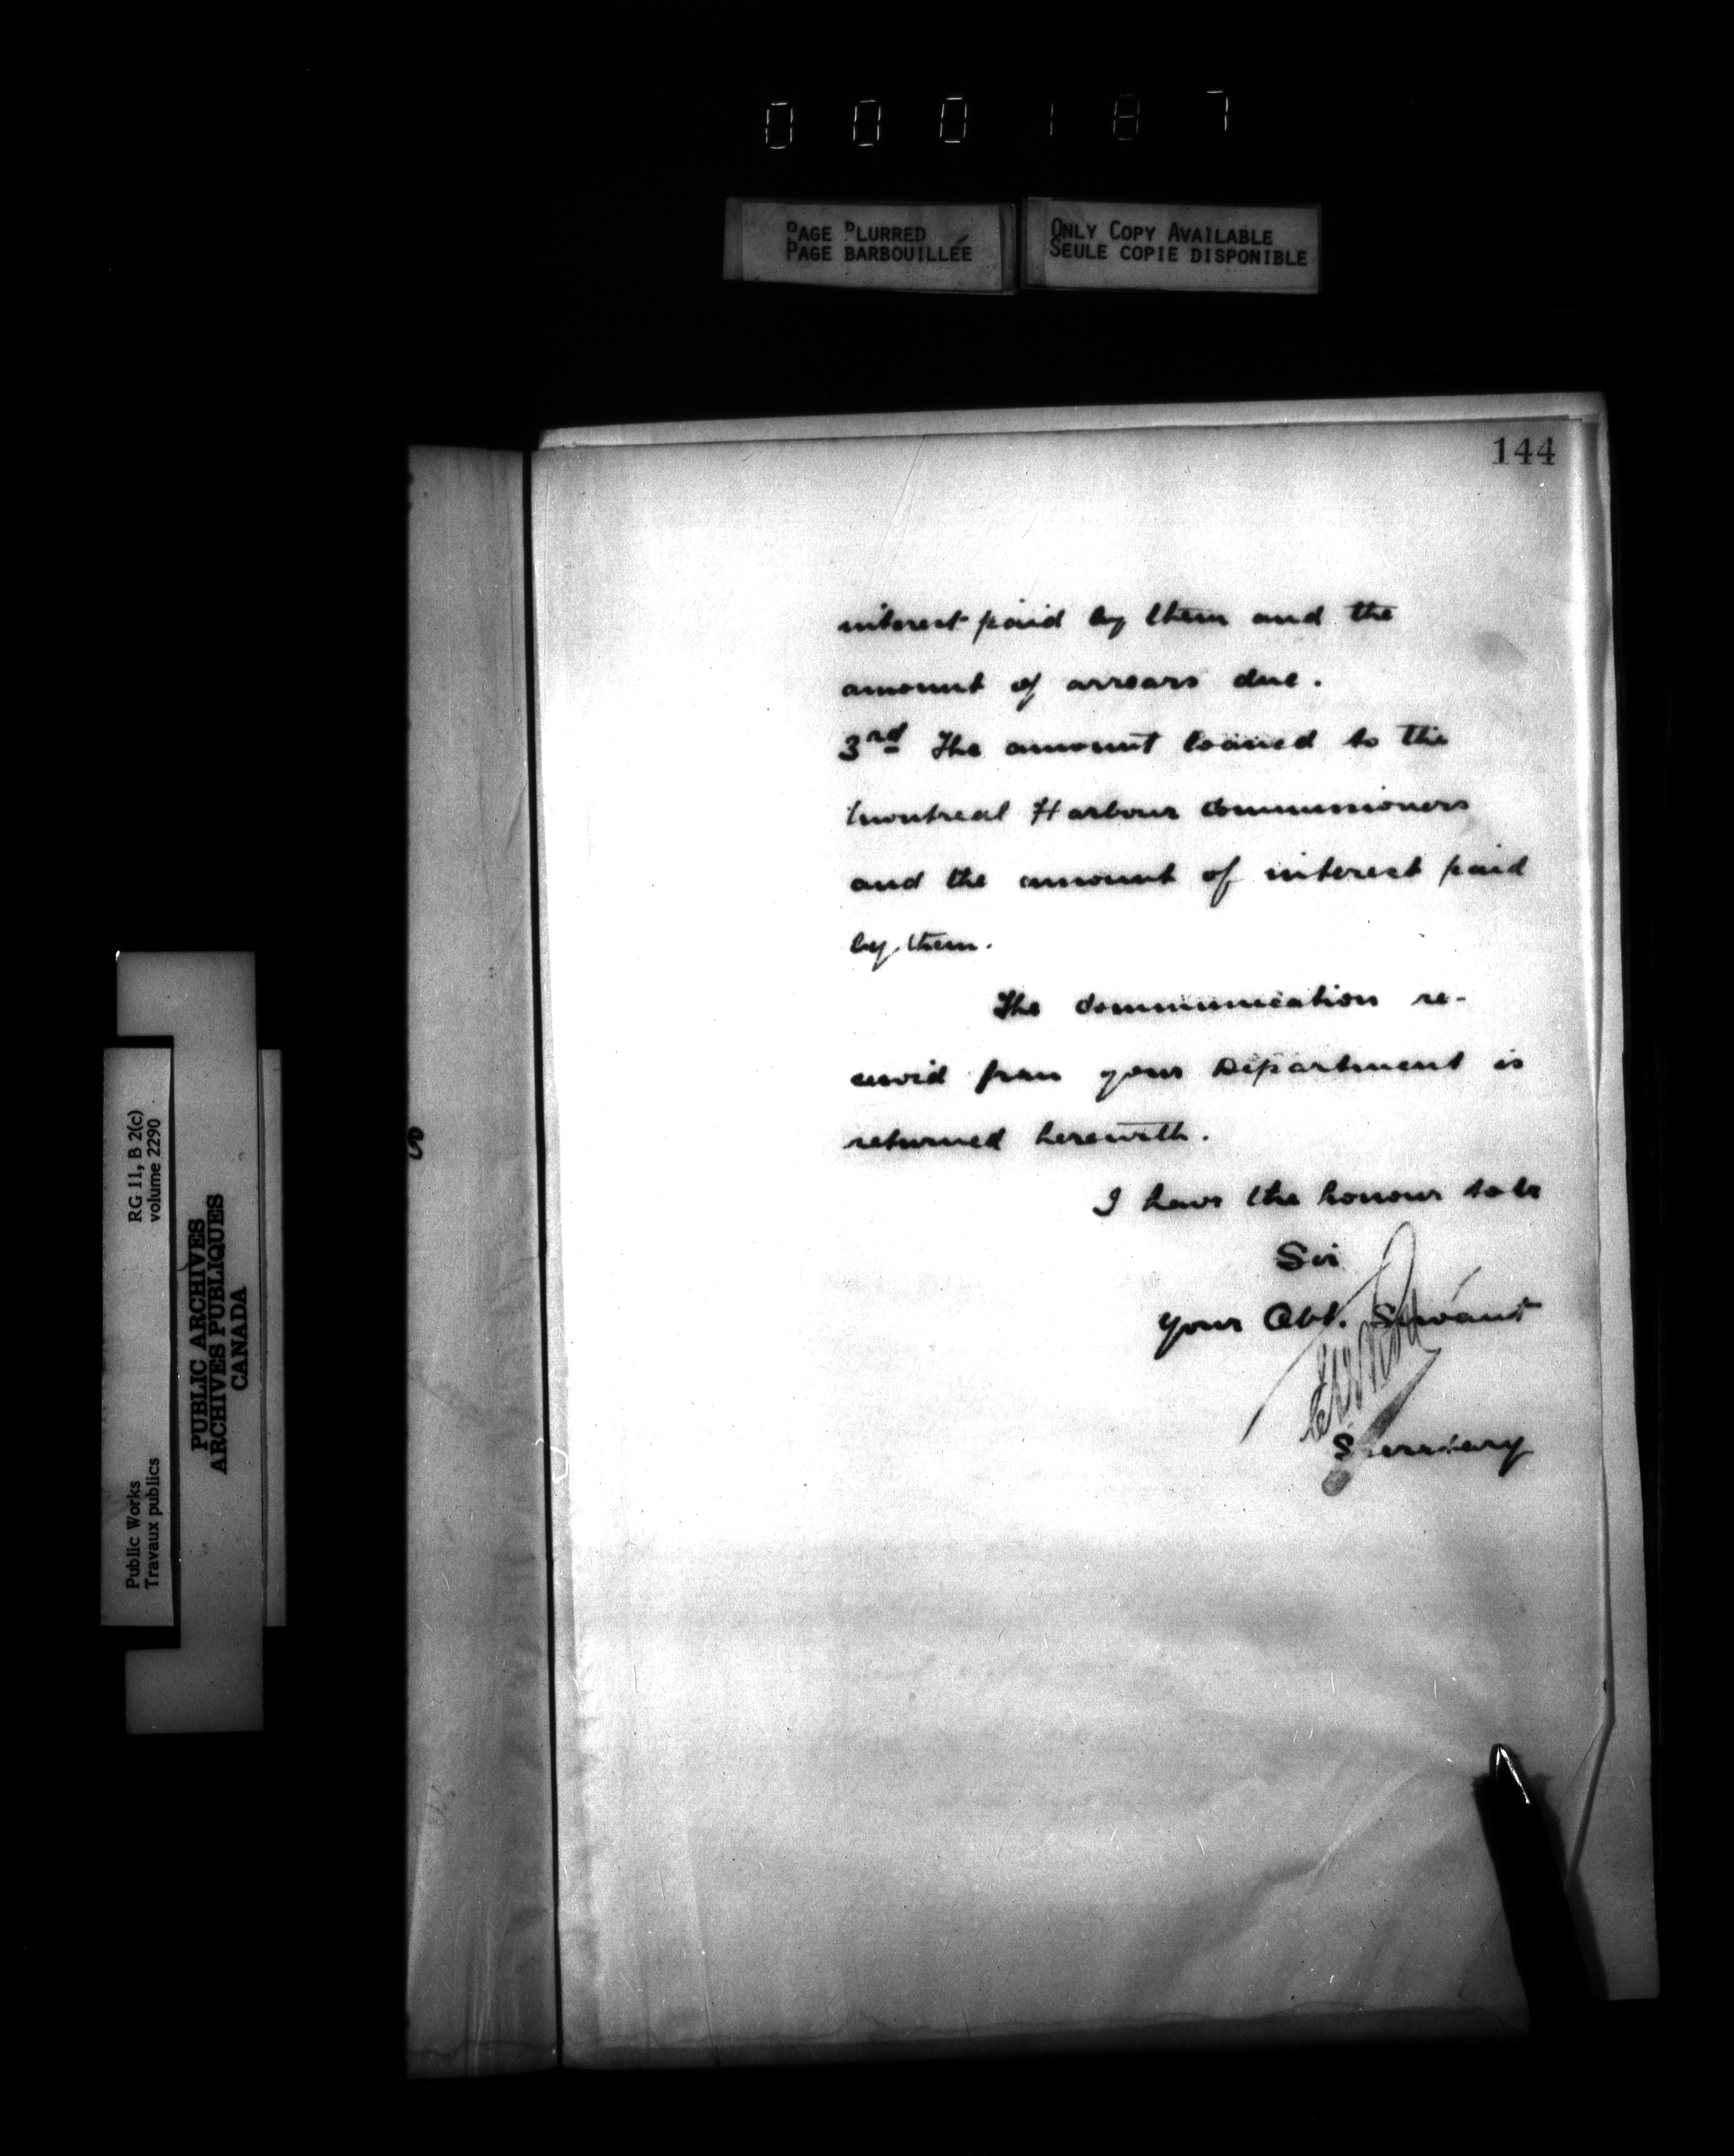 000187
PAGE BLURRED
PAGE BARBOUILLÉE
ONLY COPY AVAILABLE
SEULE COPIE DISPONIBLE
144
interest paid by them and the
amount of arrears due.
3rd The amount loaned to the
Montreal Harbour Commissioners
and the amount of interest paid
by them.
The communication re-
ceived from your Department is
returned herewith.
I have the honour to be
Sir
Your Obt. Servant
Secretary
RG 11, B 2(c)
volume 2290
Public Works
Travaux publics
PUBLIC ARCHIVES
ARCHIVES PUBLIQUES
CANADA